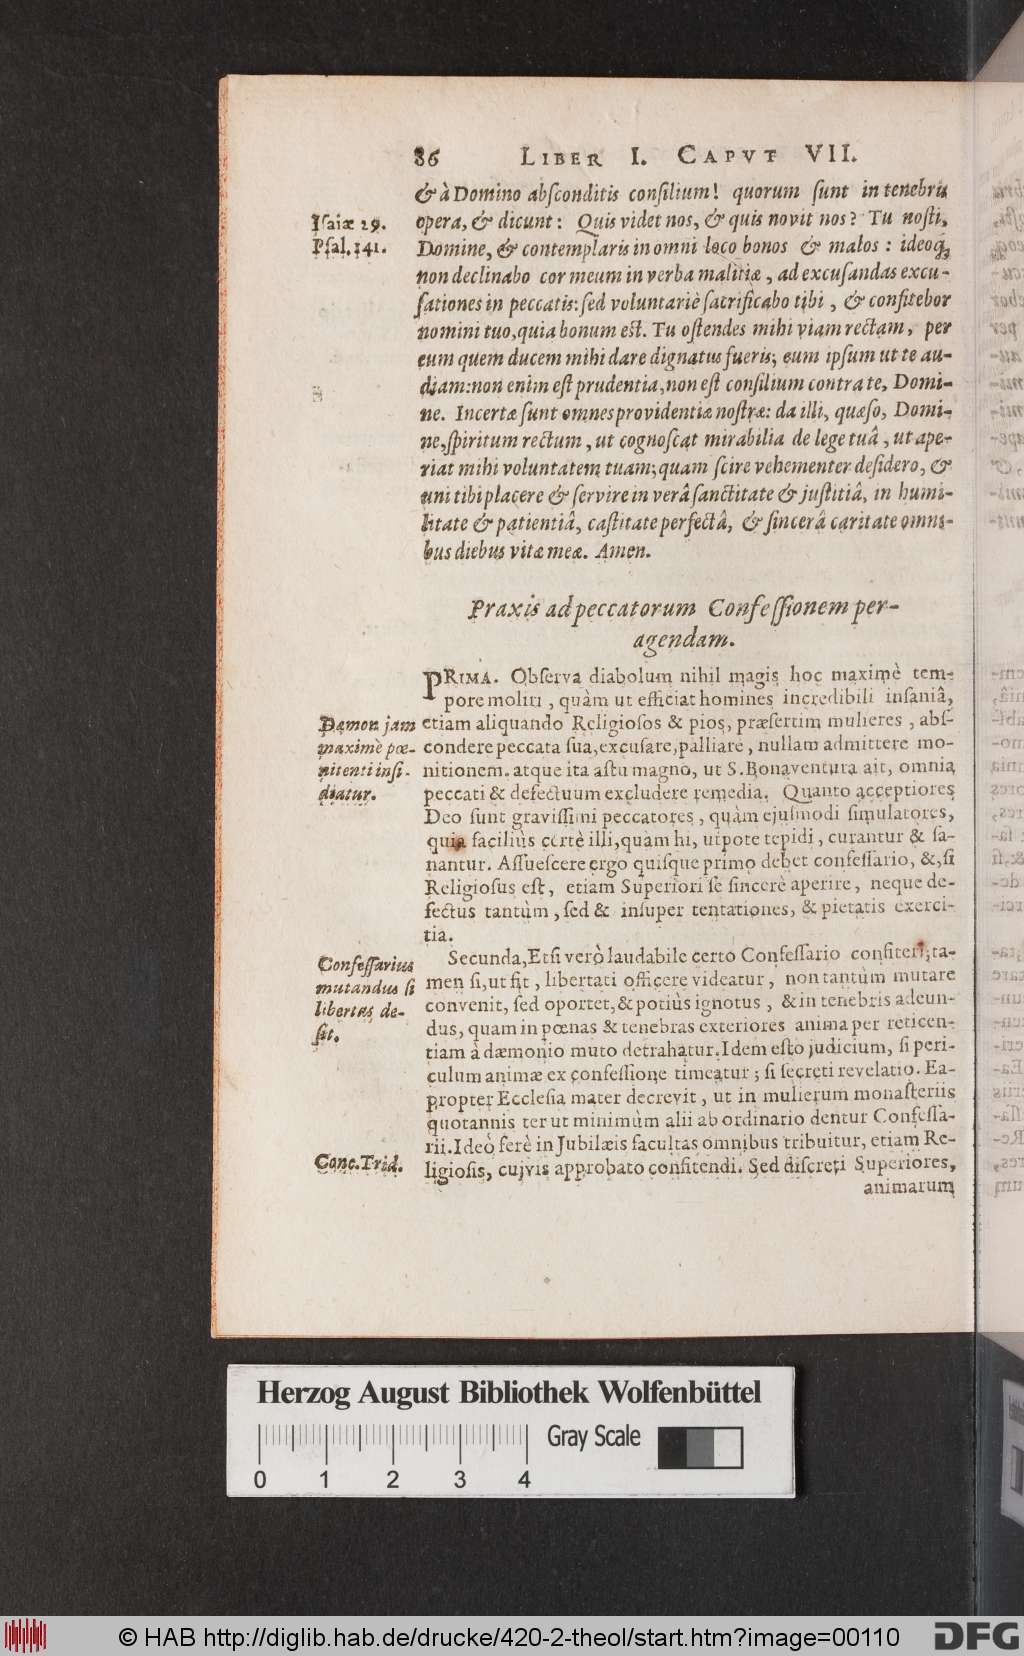 86 LIBER I. CAPVT VII.
& à Domino absconditis consilium! quorum sunt in tenebris
opera, & dicunt: Quis videt nos, & quis novit nos? Tu nosti,
Domine, & contemplaris in omni loco bonos & malos: ideoq́;
non declinabo cor meum in verba malitiæ, ad excusandas excu-
sationes in peccatis: sed voluntariè sacrificabo tibi, & confitebor
nomini tuo, quia bonum est. Tu ostendes mihi viam rectam, per
eum quem ducem mihi dare dignatus fueris; eum ipsum ut te au-
diam: non enim est prudentia, non est consilium contra te, Domi-
ne. Incertæ sunt omnes providentiæ nostræ: da illi, quæso, Domi-
ne, spiritum rectum, ut cognoscat mirabilia de lege tuâ, ut ape-
riat mihi voluntatem tuam; quam scire vehementer desidero, &
uni tibi placere & servire in verâ sanctitate & justitiâ, in humi-
litate & patientiâ, castitate perfectâ, & sincerâ caritate omni-
bus diebus vitæ meæ. Amen.
Isaiæ 29.
Psal. 141.
Praxis ad peccatorum Confessionem per-
agendam.
PRIMA. Observa diabolum nihil magis hoc maximè tem-
pore moliri, quàm ut efficiat homines incredibili insaniâ,
etiam aliquando Religiosos & pios, præsertim mulieres, abs-
condere peccata sua, excusare, palliare, nullam admittere mo-
nitionem. atque ita astu magno, ut S. Bonaventura ait, omnia
peccati & defectuum excludere remedia. Quanto acceptiores
Deo sunt gravissimi peccatores, quàm ejusmodi simulatores,
quia faciliùs certè illi, quàm hi, utpote tepidi, curantur & sa-
nantur. Assuescere ergo quisque primo debet confessario, &, si
Religiosus est, etiam Superiori se sincerè aperire, neque de-
fectus tantùm, sed & insuper tentationes, & pietatis exerci-
tia.
Dæmon jam
maximè pœ-
nitenti insi-
diatur.
Secunda, Etsi verò laudabile certo Confessario confiteri; ta-
men si, ut fit, libertati officere videatur, non tantùm mutare
convenit, sed oportet, & potiùs ignotus, & in tenebris adeun-
dus, quam in pœnas & tenebras exteriores anima per reticen-
tiam à dæmonio muto detrahatur. Idem esto judicium, si peri-
culum animæ ex confessione timeatur; si secreti revelatio. Ea-
propter Ecclesia mater decrevit, ut in mulierum monasteriis
quotannis ter ut minimùm alii ab ordinario dentur Confessa-
rii. Ideò ferè in Jubilæis facultas omnibus tribuitur, etiam Re-
ligiosis, cujvis approbato confitendi. Sed discreti Superiores,
animarum
Confessarius
mutandus si
libertas de-
sit.
Conc. Trid.
Herzog August Bibliothek Wolfenbüttel
Gray Scale
0 1 2 3 4
© HAB http://diglib.hab.de/drucke/420-2-theol/start.htm?image=00110
DFG